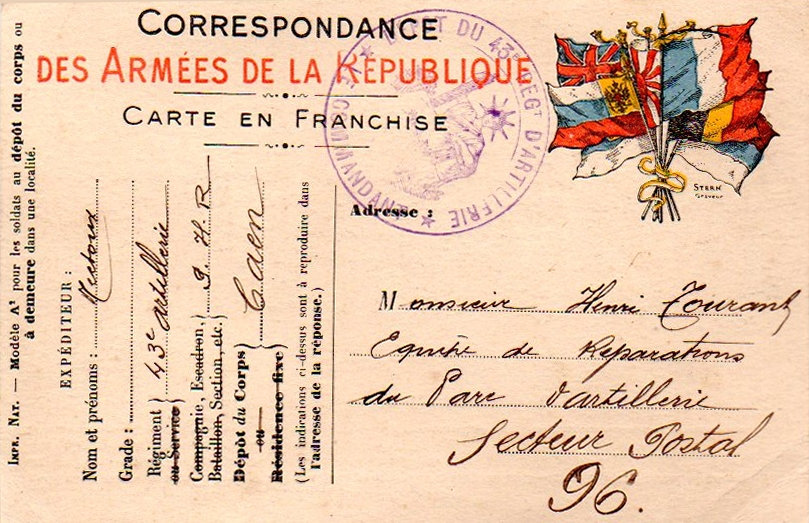 CORRESPONDANCE
DES ARMÉES DE LA RÉPUBLIQUE
CARTE EN FRANCHISE
DÉPÔT DU 43E REGT D'ARTILLERIE
LE COMMANDANT
STERN
Graveur
Adresse :
Monsieur Henri Tourant
Equipe de Réparations
du Parc d'artillerie
Secteur Postal
96.
IMPR. NAT. — Modèle A² pour les soldats au dépôt du corps ou
à demeure dans une localité.
EXPÉDITEUR :
Nom et prénoms :
Grade :
Régiment
ou Service
43e artillerie
Compagnie, Escadron,
Bataillon, Section, etc.
P. H. R
Dépôt du Corps
ou
Résidence fixe
Caen
(Les indications ci-dessus sont à reproduire dans
l'adresse de la réponse.)